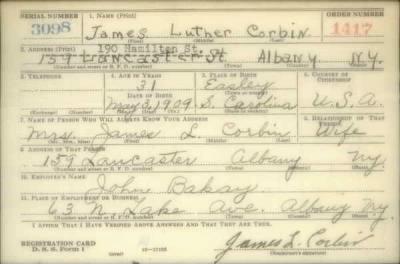 SERIAL NUMBER 1. NAME (Print) ORDER NUMBER
3098 James Luther Corbin 1417
(First) (Middle) (Last)
190 Hamilton St.
2. ADDRESS (Print)
159 Lancaster St Albany N.Y.
(Number and street or R. F. D. number) (Town) (County) (State)
3. TELEPHONE 4. AGE IN YEARS 5. PLACE OF BIRTH 6. COUNTRY OF CITIZENSHIP
31 Easley
DATE OF BIRTH (Town or county)
May 3, 1909 S. Carolina U.S.A.
(Exchange) (Number) (Mo.) (Day) (Yr.) (State or country)
7. NAME OF PERSON WHO WILL ALWAYS KNOW YOUR ADDRESS 8. RELATIONSHIP OF THAT PERSON
Mrs. James L Corbin Wife
(Mr., Mrs., Miss) (First) (Middle) (Last)
9. ADDRESS OF THAT PERSON
159 Lancaster Albany Ny
(Number and street or R. F. D. number) (Town) (County) (State)
10. EMPLOYER'S NAME
John Bakay
11. PLACE OF EMPLOYMENT OR BUSINESS
63 N. Lake Ave. Albany Ny.
(Number and street or R. F. D. number) (Town) (County) (State)
I AFFIRM THAT I HAVE VERIFIED ABOVE ANSWERS AND THAT THEY ARE TRUE.
REGISTRATION CARD
D. S. S. Form 1 (over) James L. Corbin
(Registrant's signature)